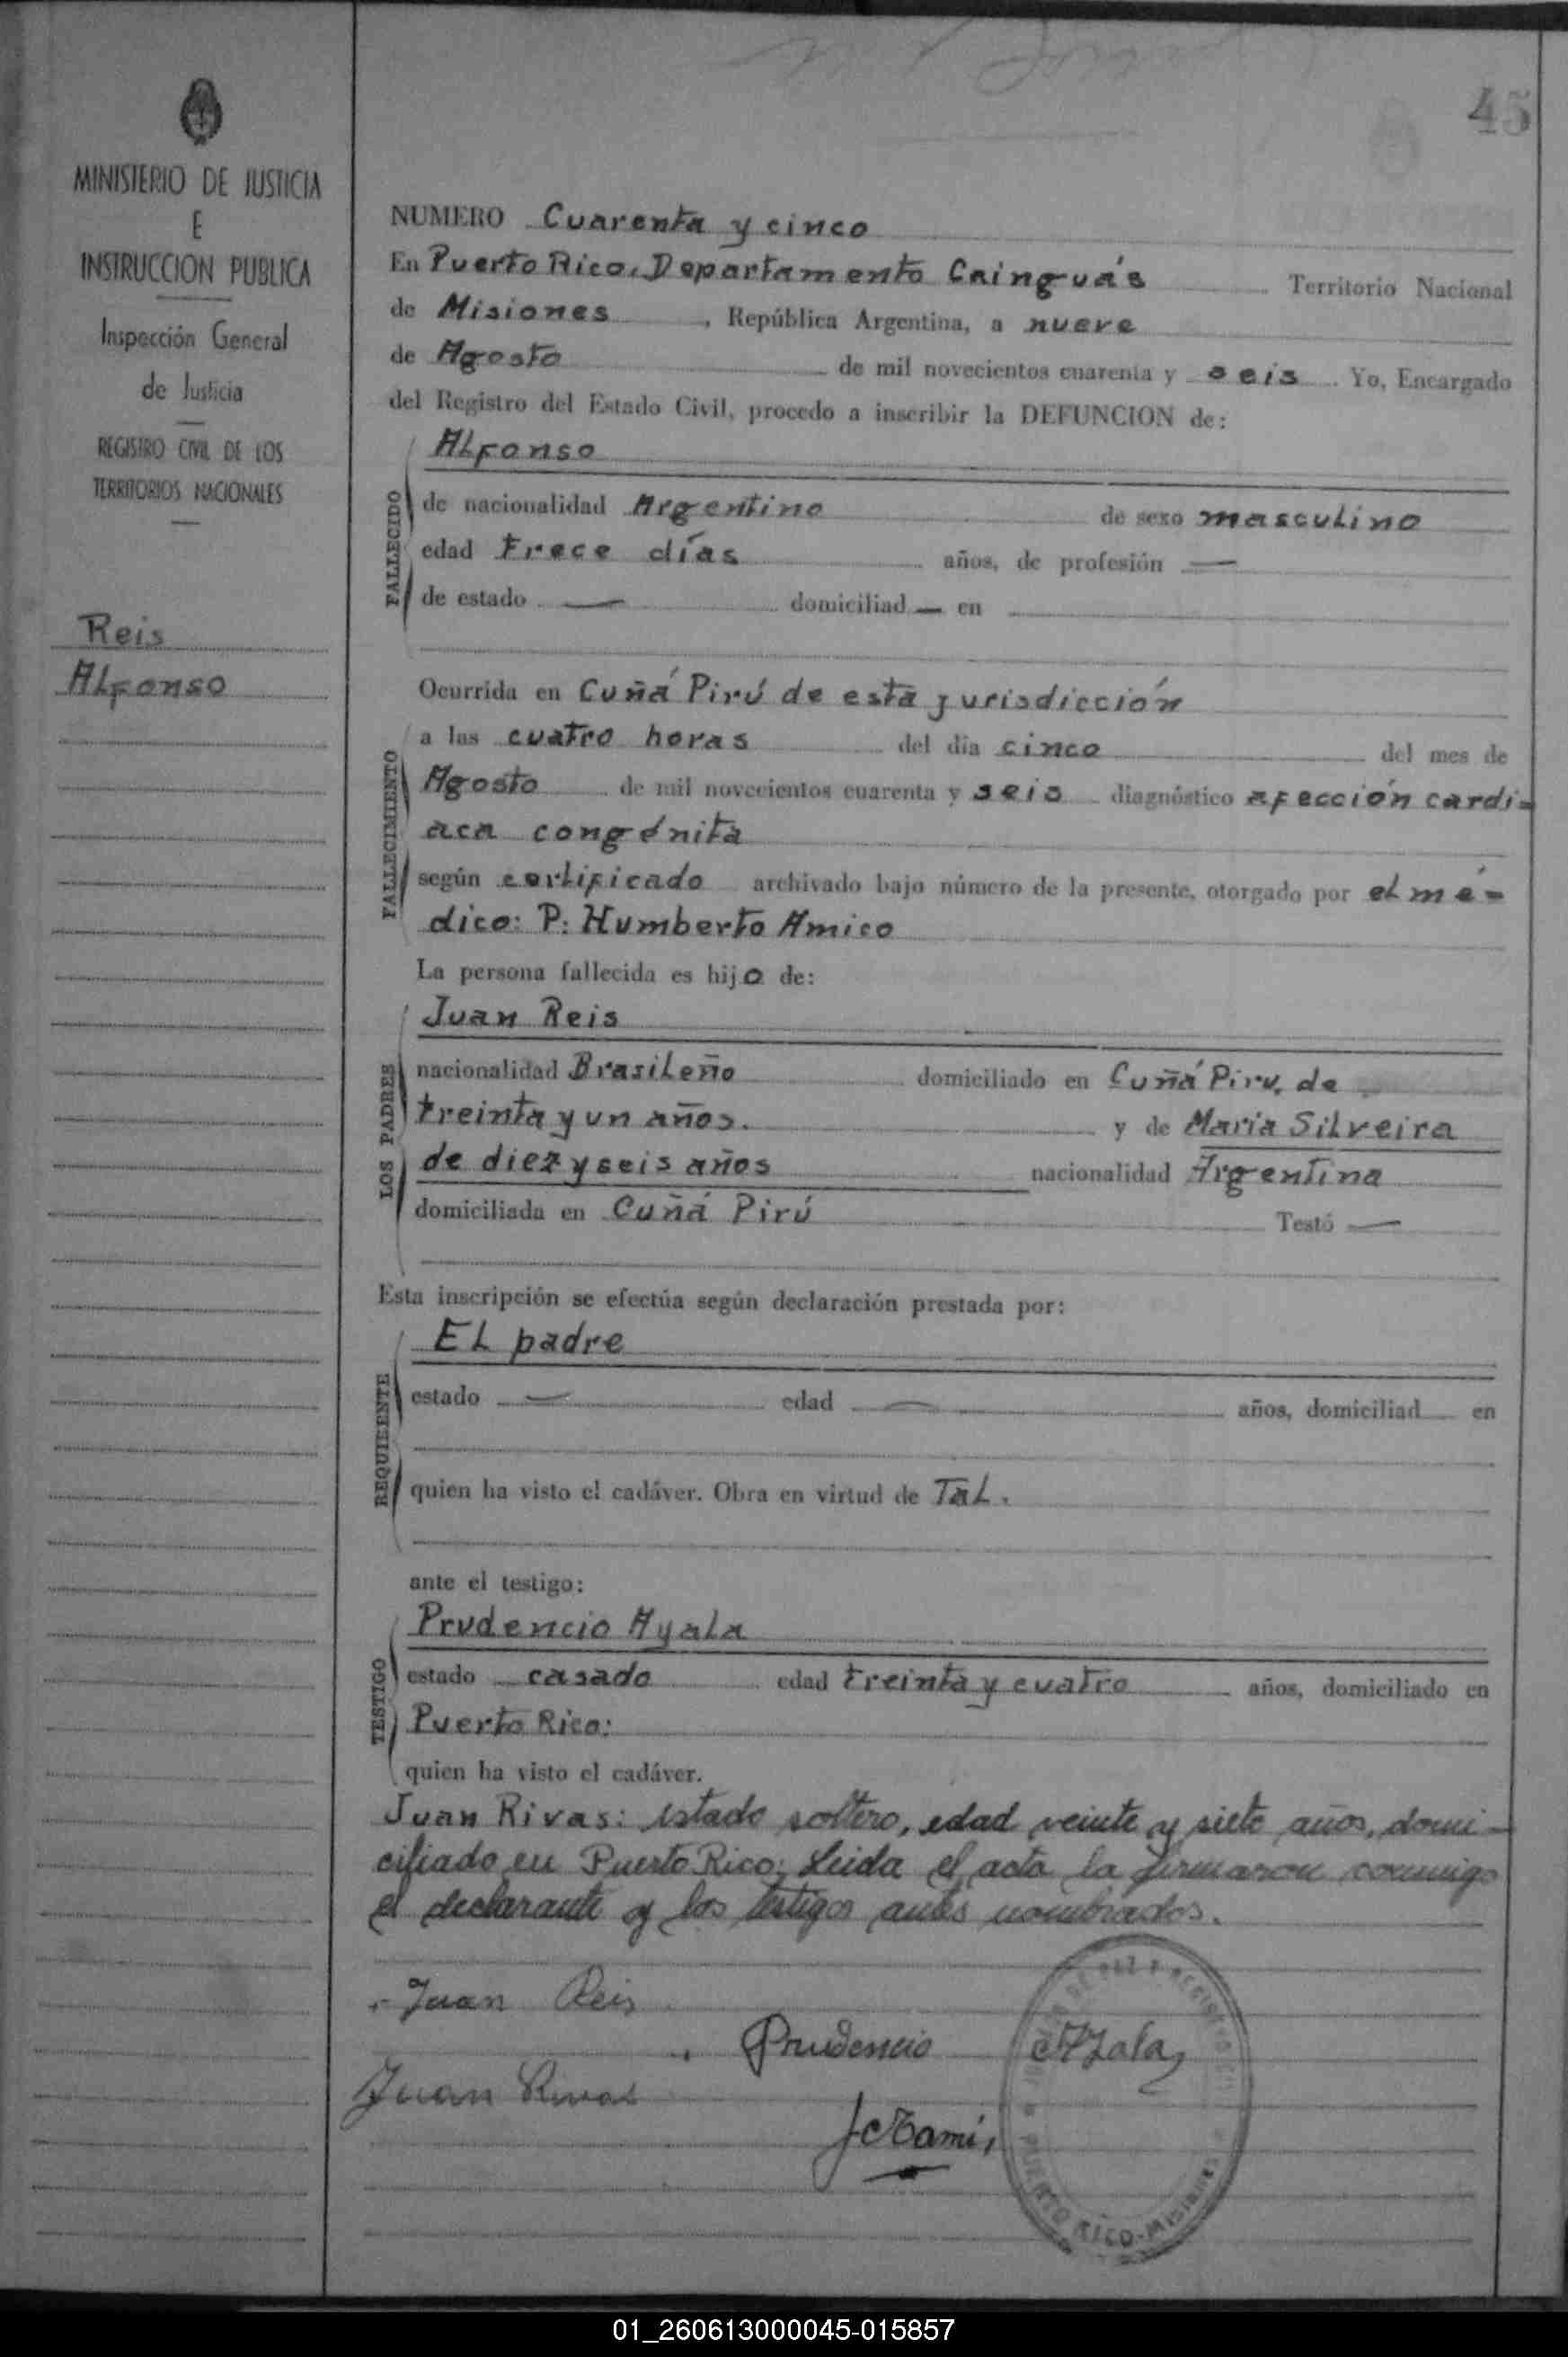 45
MINISTERIO DE JUSTICIA
E
INSTRUCCION PUBLICA
Inspección General
de Justicia
REGISTRO CIVIL DE LOS
TERRITORIOS NACIONALES
Reis
Alfonso
NUMERO Cuarenta y cinco
En Puerto Rico, Departamento Cainguás Territorio Nacional
de Misiones, República Argentina, a nueve
de Agosto de mil novecientos cuarenta y seis. Yo, Encargado
del Registro del Estado Civil, procedo a inscribir la DEFUNCION de:
FALLECIDO
Alfonso
de nacionalidad Argentino de sexo masculino
edad trece días años, de profesión —
de estado — domiciliad — en
FALLECIMIENTO
Ocurrida en Cuñá Pirú de esta jurisdicción
a las cuatro horas del día cinco del mes de
Agosto de mil novecientos cuarenta y seis diagnóstico afección cardi-
aca congénita
según certificado archivado bajo número de la presente, otorgado por el mé-
dico: P. Humberto Amico
La persona fallecida es hijo de:
LOS PADRES
Juan Reis
nacionalidad Brasileño domiciliado en Cuñá Pirú, de
treinta y un años. y de Maria Silveira
de diez y seis años nacionalidad Argentina
domiciliada en Cuñá Pirú Testó —
Esta inscripción se efectúa según declaración prestada por:
REQUIRENTE
El padre
estado — edad — años, domiciliad en
quien ha visto el cadáver. Obra en virtud de Tal.
ante el testigo:
TESTIGO
Prudencio Ayala
estado casado edad treinta y cuatro años, domiciliado en
Puerto Rico:
quien ha visto el cadáver.
Juan Rivas: estado soltero, edad veinte y siete años, domi-
ciliado en Puerto Rico. Leida el acta la firmaron conmigo
el declarante y los testigos antes nombrados.
Juan Reis
Prudencio Ayala
Juan Rivas
PUERTO RICO-MISIONES
01_260613000045-015857